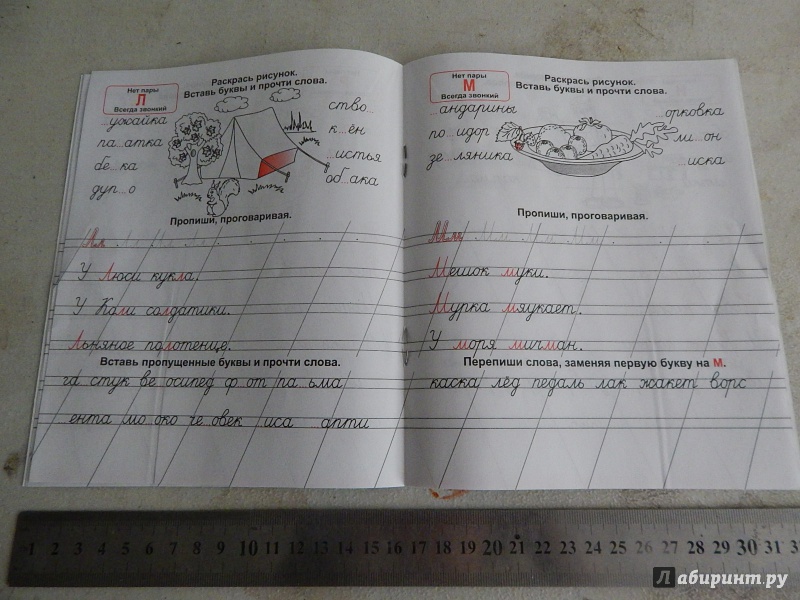 Нет пары
Л
Всегда звонкий
Раскрась рисунок.
Вставь буквы и прочти слова.
...ужайка
па...атка
бе...ка
дуп...о
ство...
к...ён
...истья
об...ака
Пропиши, проговаривая.
Лл
У Люси кукла.
У Коли солдатики.
Льняное полотенце.
Вставь пропущенные буквы и прочти слова.
га...стук ве...осипед ф...от па...ьма
...ента мо...око че...овек ...иса ...апти
Нет пары
М
Всегда звонкий
Раскрась рисунок.
Вставь буквы и прочти слова.
...андарины
по...идор
зе...ляника
...орковка
ли...он
...иска
Пропиши, проговаривая.
Мм Мм Мм Мм
Мешок муки.
Мурка мяукает.
У моря мичман.
Перепиши слова, заменяя первую букву на М.
каска лёд педаль лак жакет ворс
1 2 3 4 5 6 7 8 9 10 11 12 13 14 15 16 17 18 19 20 21 22 23 24 25 26 27 28 29 30 31 3
Лабиринт.ру